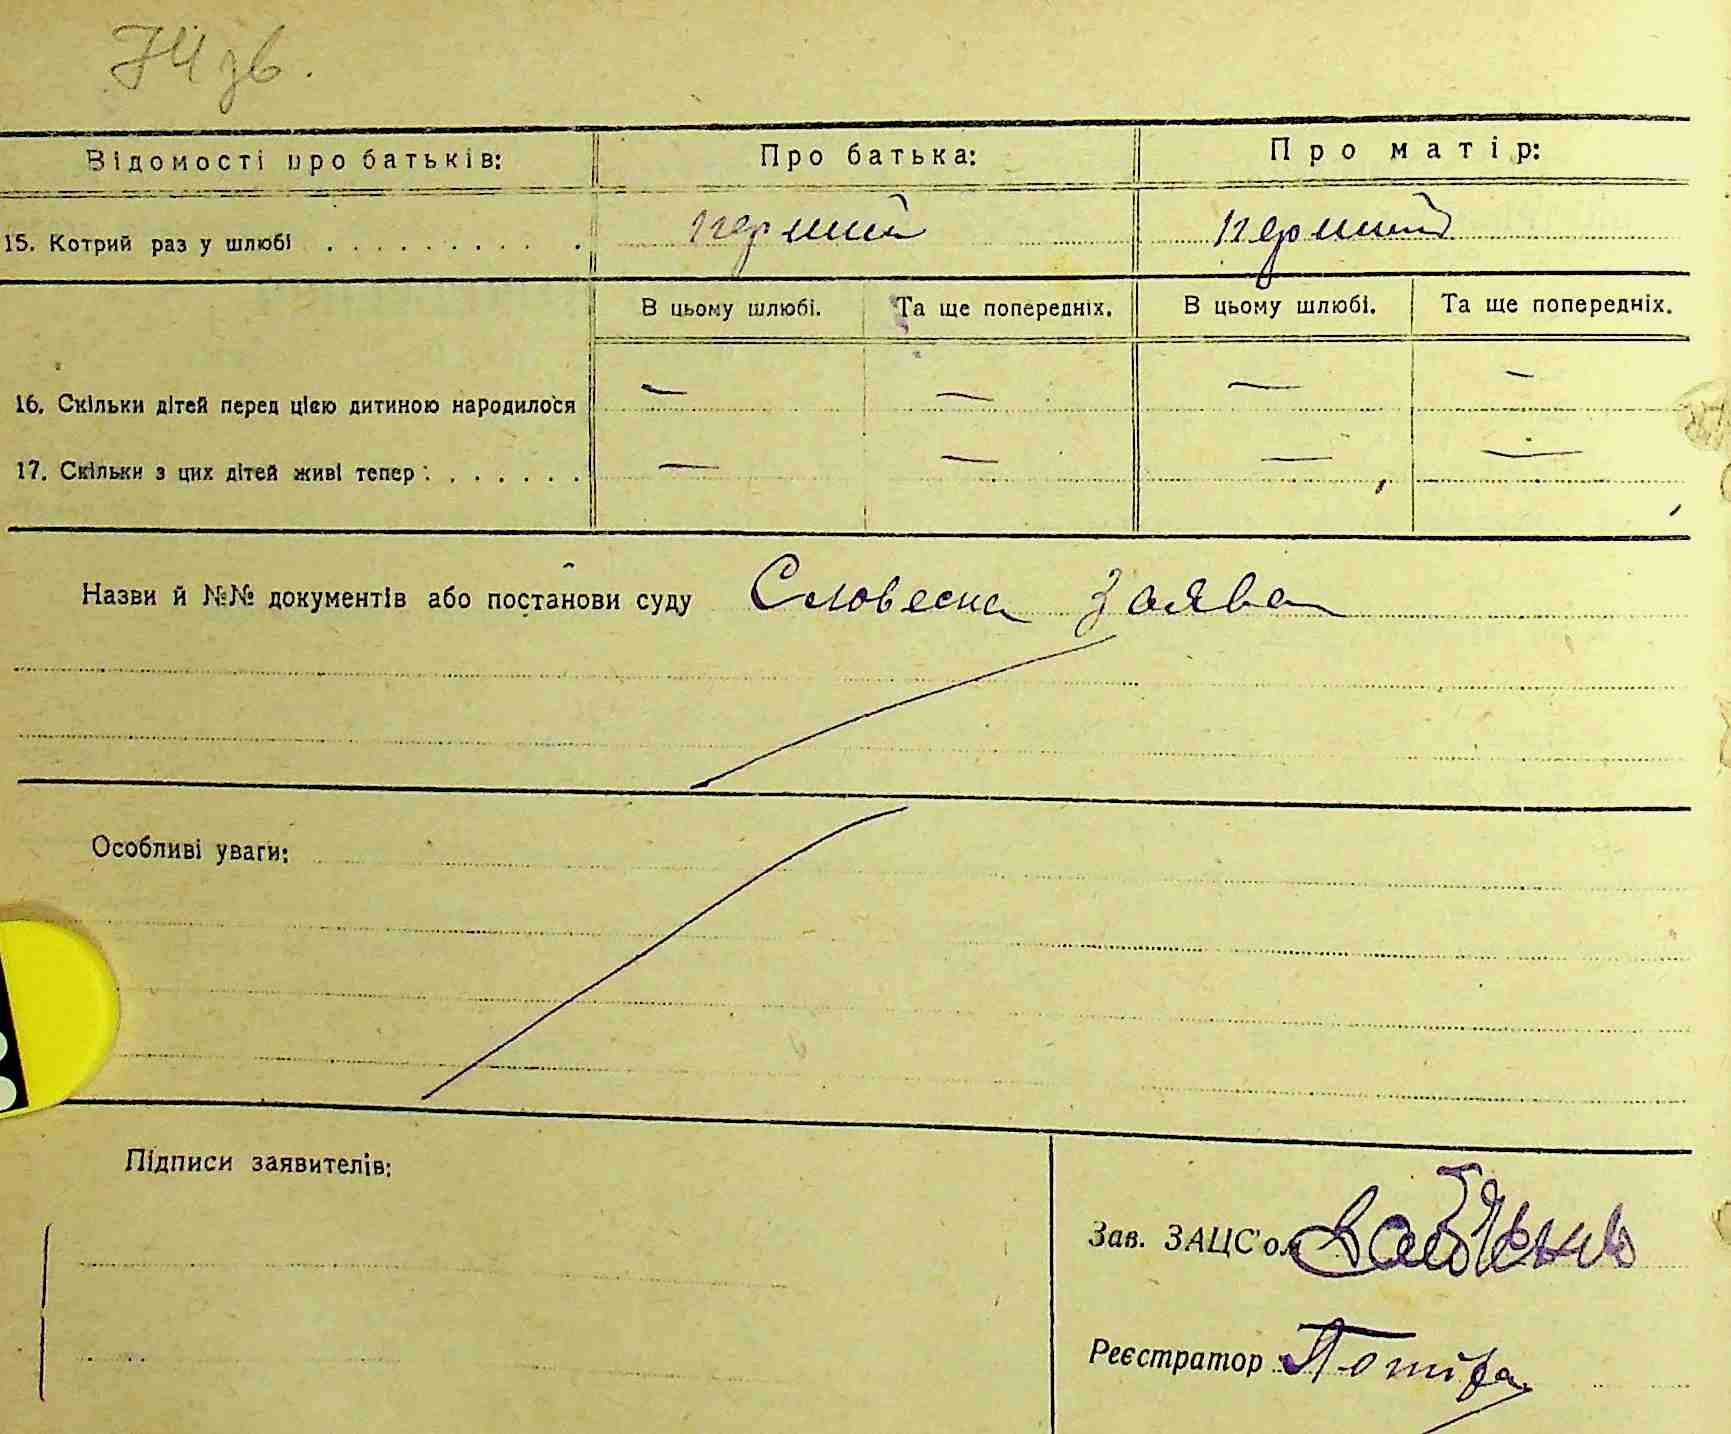 74 зв.
Відомості про батьків: Про батька: Про матір:
15. Котрий раз у шлюбі . . . . . . . . . . перший перший
В цьому шлюбі. Та ще попередніх. В цьому шлюбі. Та ще попередніх.
16. Скільки дітей перед цією дитиною народилося — — — —
17. Скільки з цих дітей живі тепер . . . . . . . — — — —
Назви й №№ документів або постанови суду Словесна заява
Особливі уваги:
Підписи заявителів:
Зав. ЗАЦС'ом
Реєстратор